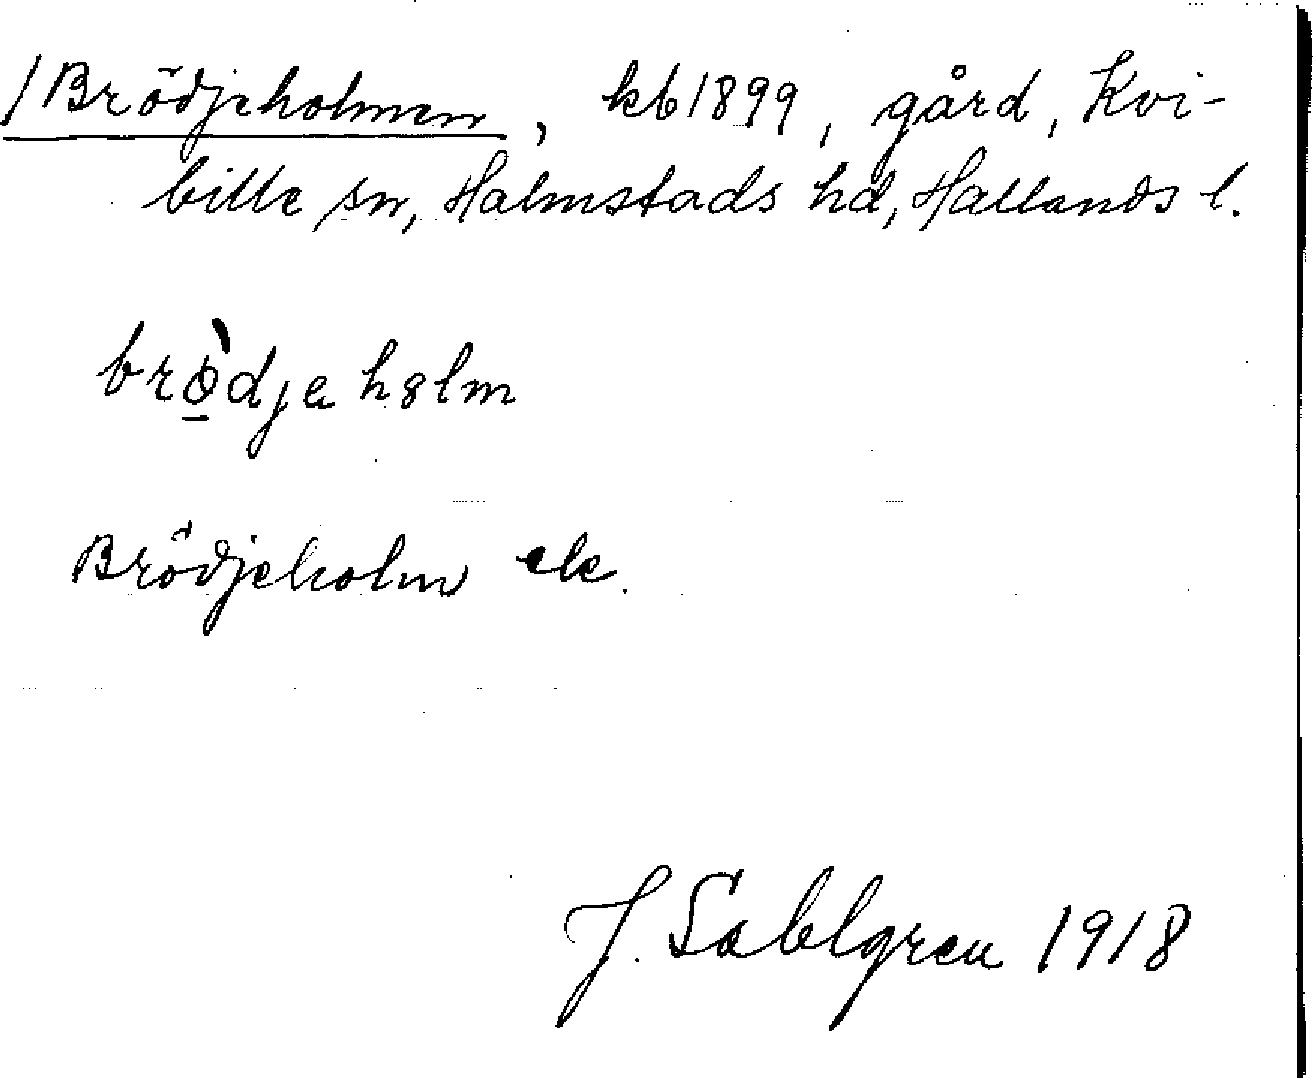 /Brödjeholmen, kb 1899, gård, Kvi-
bille sn, Halmstads hd, Hallands l.
brø̲̀djahslm
Brödjeholm ek.
J. Sahlgren 1918